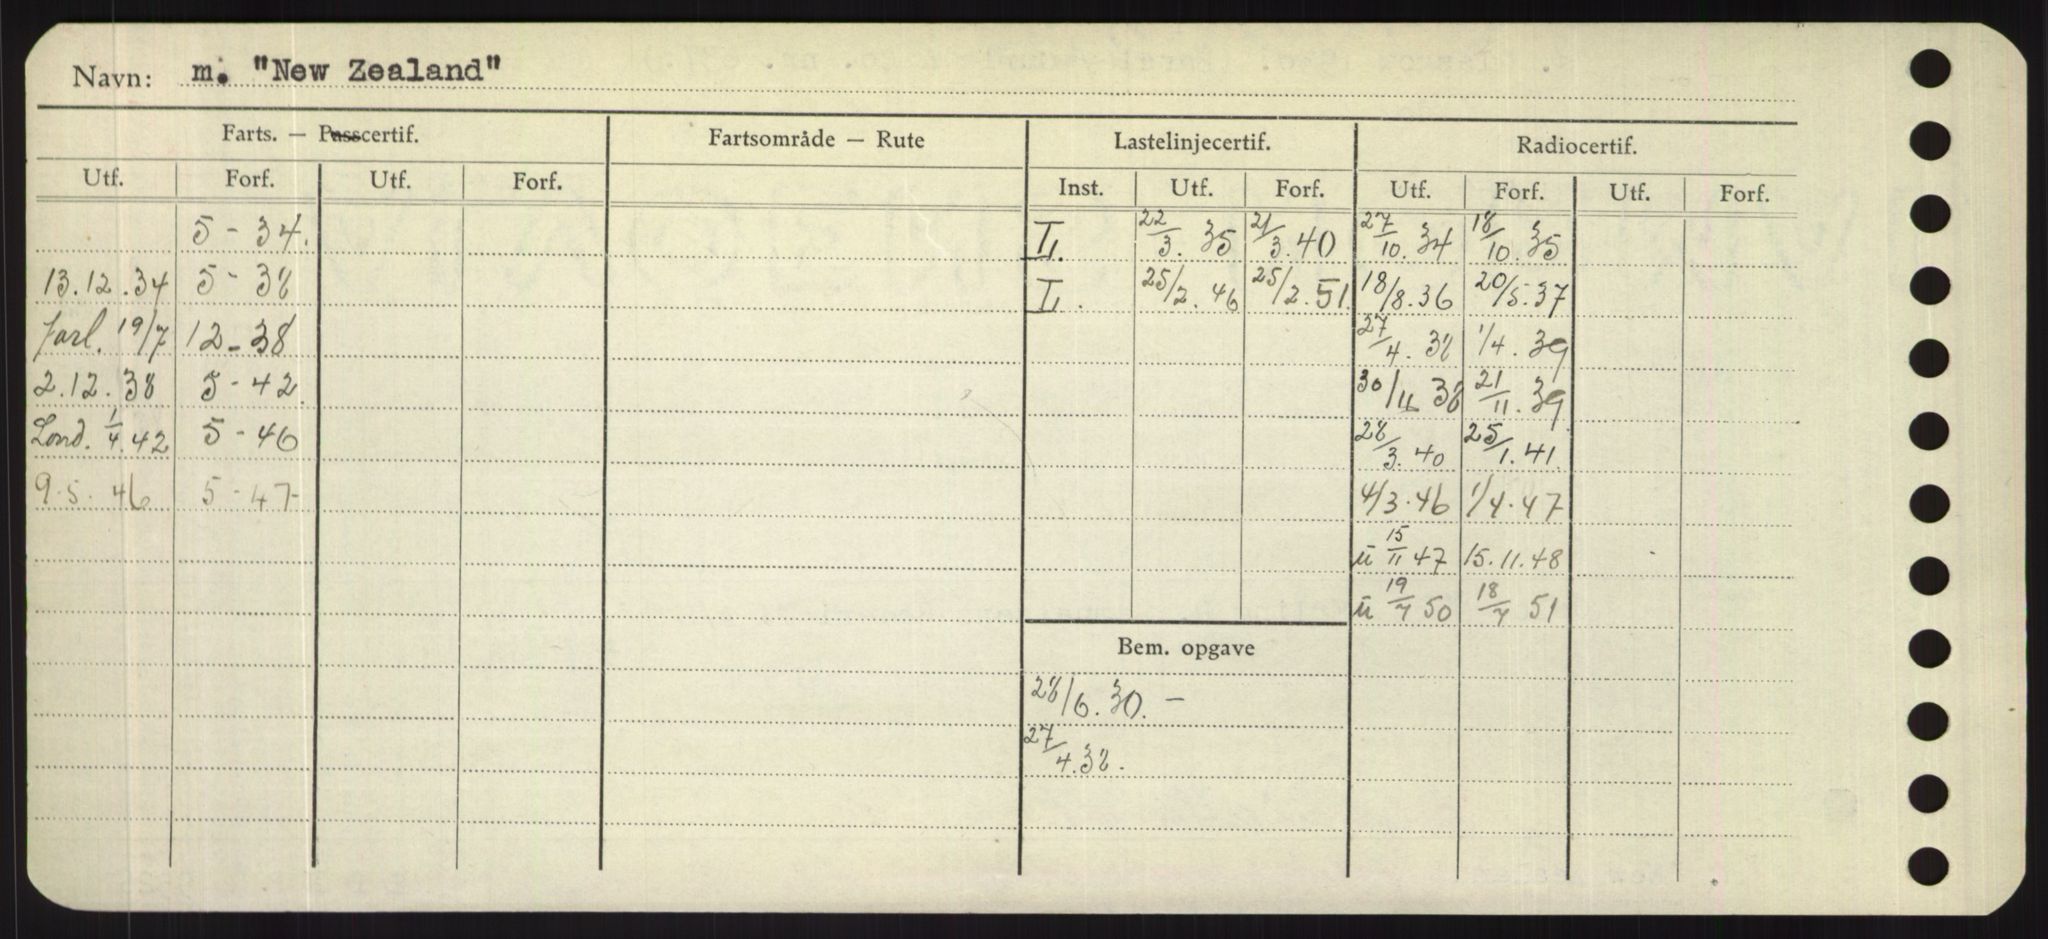 Navn: m. "New Zealand"
Farts. — Passcertif. Fartsområde — Rute Lastelinjecertif. Radiocertif.
Utf. Forf. Utf. Forf. Inst. Utf. Forf. Utf. Forf. Utf. Forf.
5 - 34. I. 22/3. 35 21/3. 40 27/10. 34 18/10. 35
13.12.34 5 - 38 I. 25/2. 46 25/2. 51 18/8. 36 20/5. 37
forl. 19/7 12 - 38 27/4. 38 1/4. 39
2.12.38 5 - 42. 30/11 38 21/11. 39
Lond. 1/4. 42 5 - 46 28/3. 40 25/1. 41
9.5. 46 5 - 47 4/3. 46 1/4. 47
u 15/11 47 15.11.48
u 19/7 50 18/7 51
Bem. opgave
28/6. 30. —
27/4. 38.